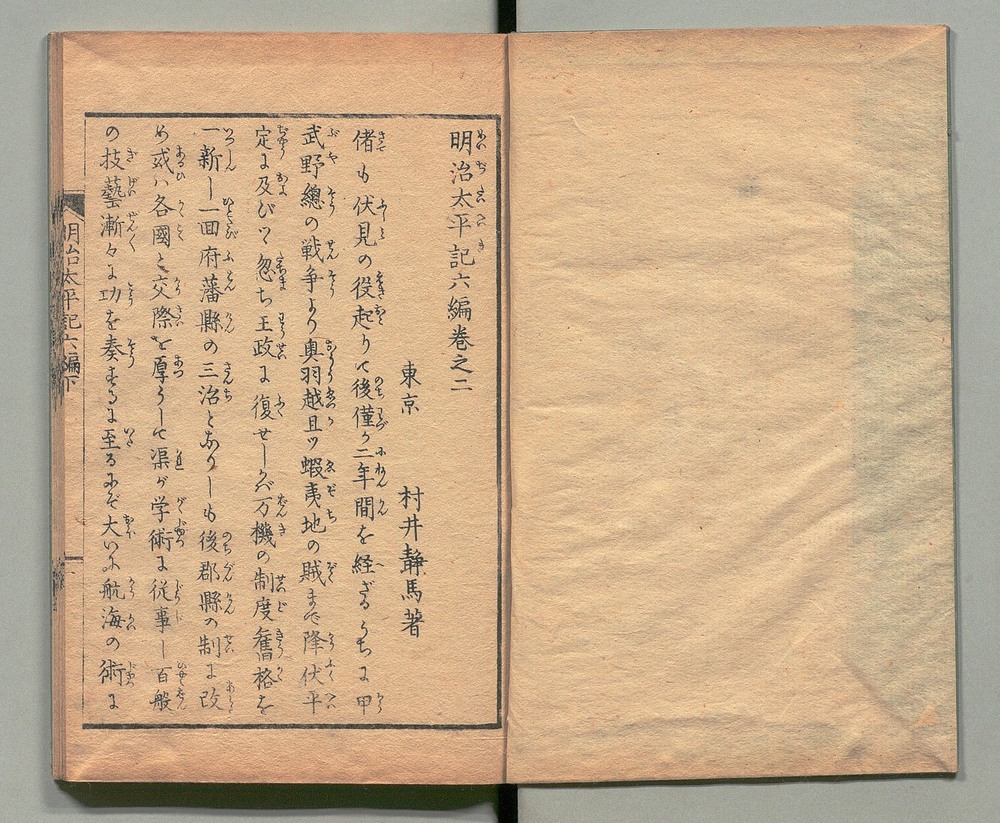 明治太平記六編巻之二
東京 村井靜馬著
偖も伏見の役起りて後僅か二年間を経ざるうちに甲
武野總の戦争より奥羽越且ツ蝦夷地の賊まで降伏平
定に及びて忽ち王政に復せしかバ万機の制度舊格を
一新し一回府藩縣の三治となりしも後郡縣の制に改
め或ハ各國と交際を厚うして渠が学術に従事し百般
の技藝漸々に功を奏するに至るにぞ大いに航海の術に
明治太平記六編下